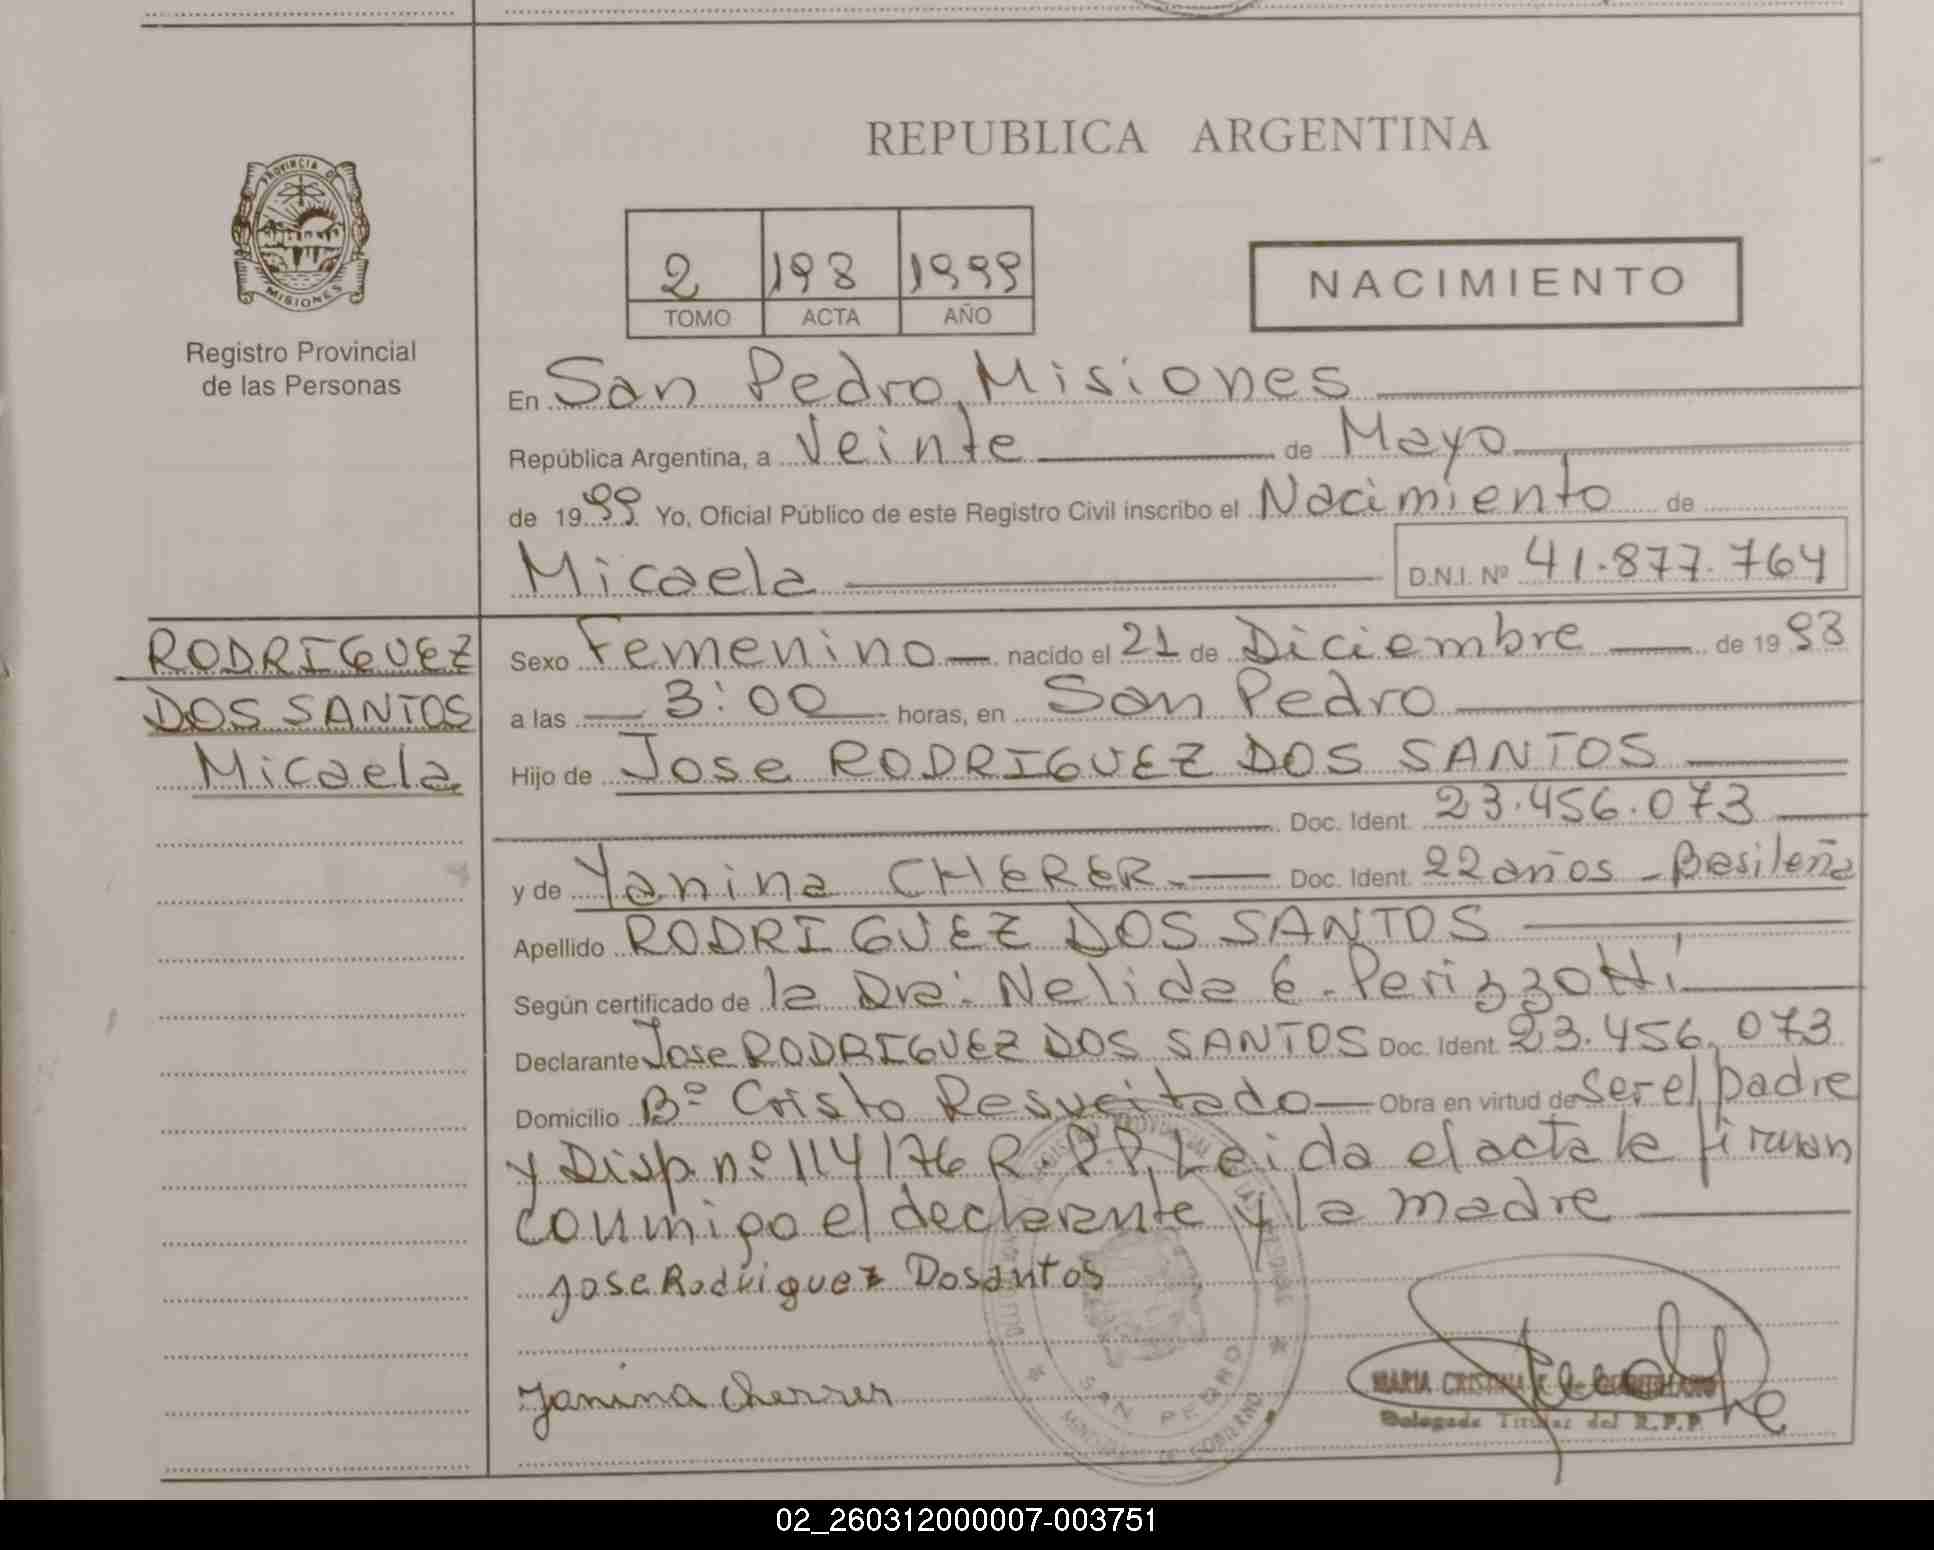 REPUBLICA ARGENTINA
PROVINCIA DE
MISIONES
Registro Provincial
de las Personas
2 198 1999
TOMO ACTA AÑO
NACIMIENTO
En San Pedro, Misiones
República Argentina, a Veinte de Mayo
de 1999 Yo, Oficial Público de este Registro Civil inscribo el Nacimiento de
Micaela D.N.I. Nº 41.877.764
RODRIGUEZ
DOS SANTOS
Micaela
Sexo Femenino nacido el 21 de Diciembre de 1998
a las 3:00 horas, en San Pedro
Hijo de Jose RODRIGUEZ DOS SANTOS
Doc. Ident. 23.456.073
y de Yanina CHERER.- Doc. Ident. 22 años - Brasileña
Apellido RODRIGUEZ DOS SANTOS
Según certificado de la Dra: Nelida E. Perizzotti
Declarante Jose RODRIGUEZ DOS SANTOS Doc. Ident. 23.456.073
Domicilio Bº Cristo Resucitado Obra en virtud de ser el padre
y Disp. nº 114/76 R.P.P. Leida el acta la firman
conmigo el declarante y la madre
Jose Rodriguez Dosantos
Yanina Cherrer
SAN PEDRO
MINISTERIO DE GOBIERNO
MARIA CRISTINA
Delegada Titular del R.P.P.
02_260312000007-003751